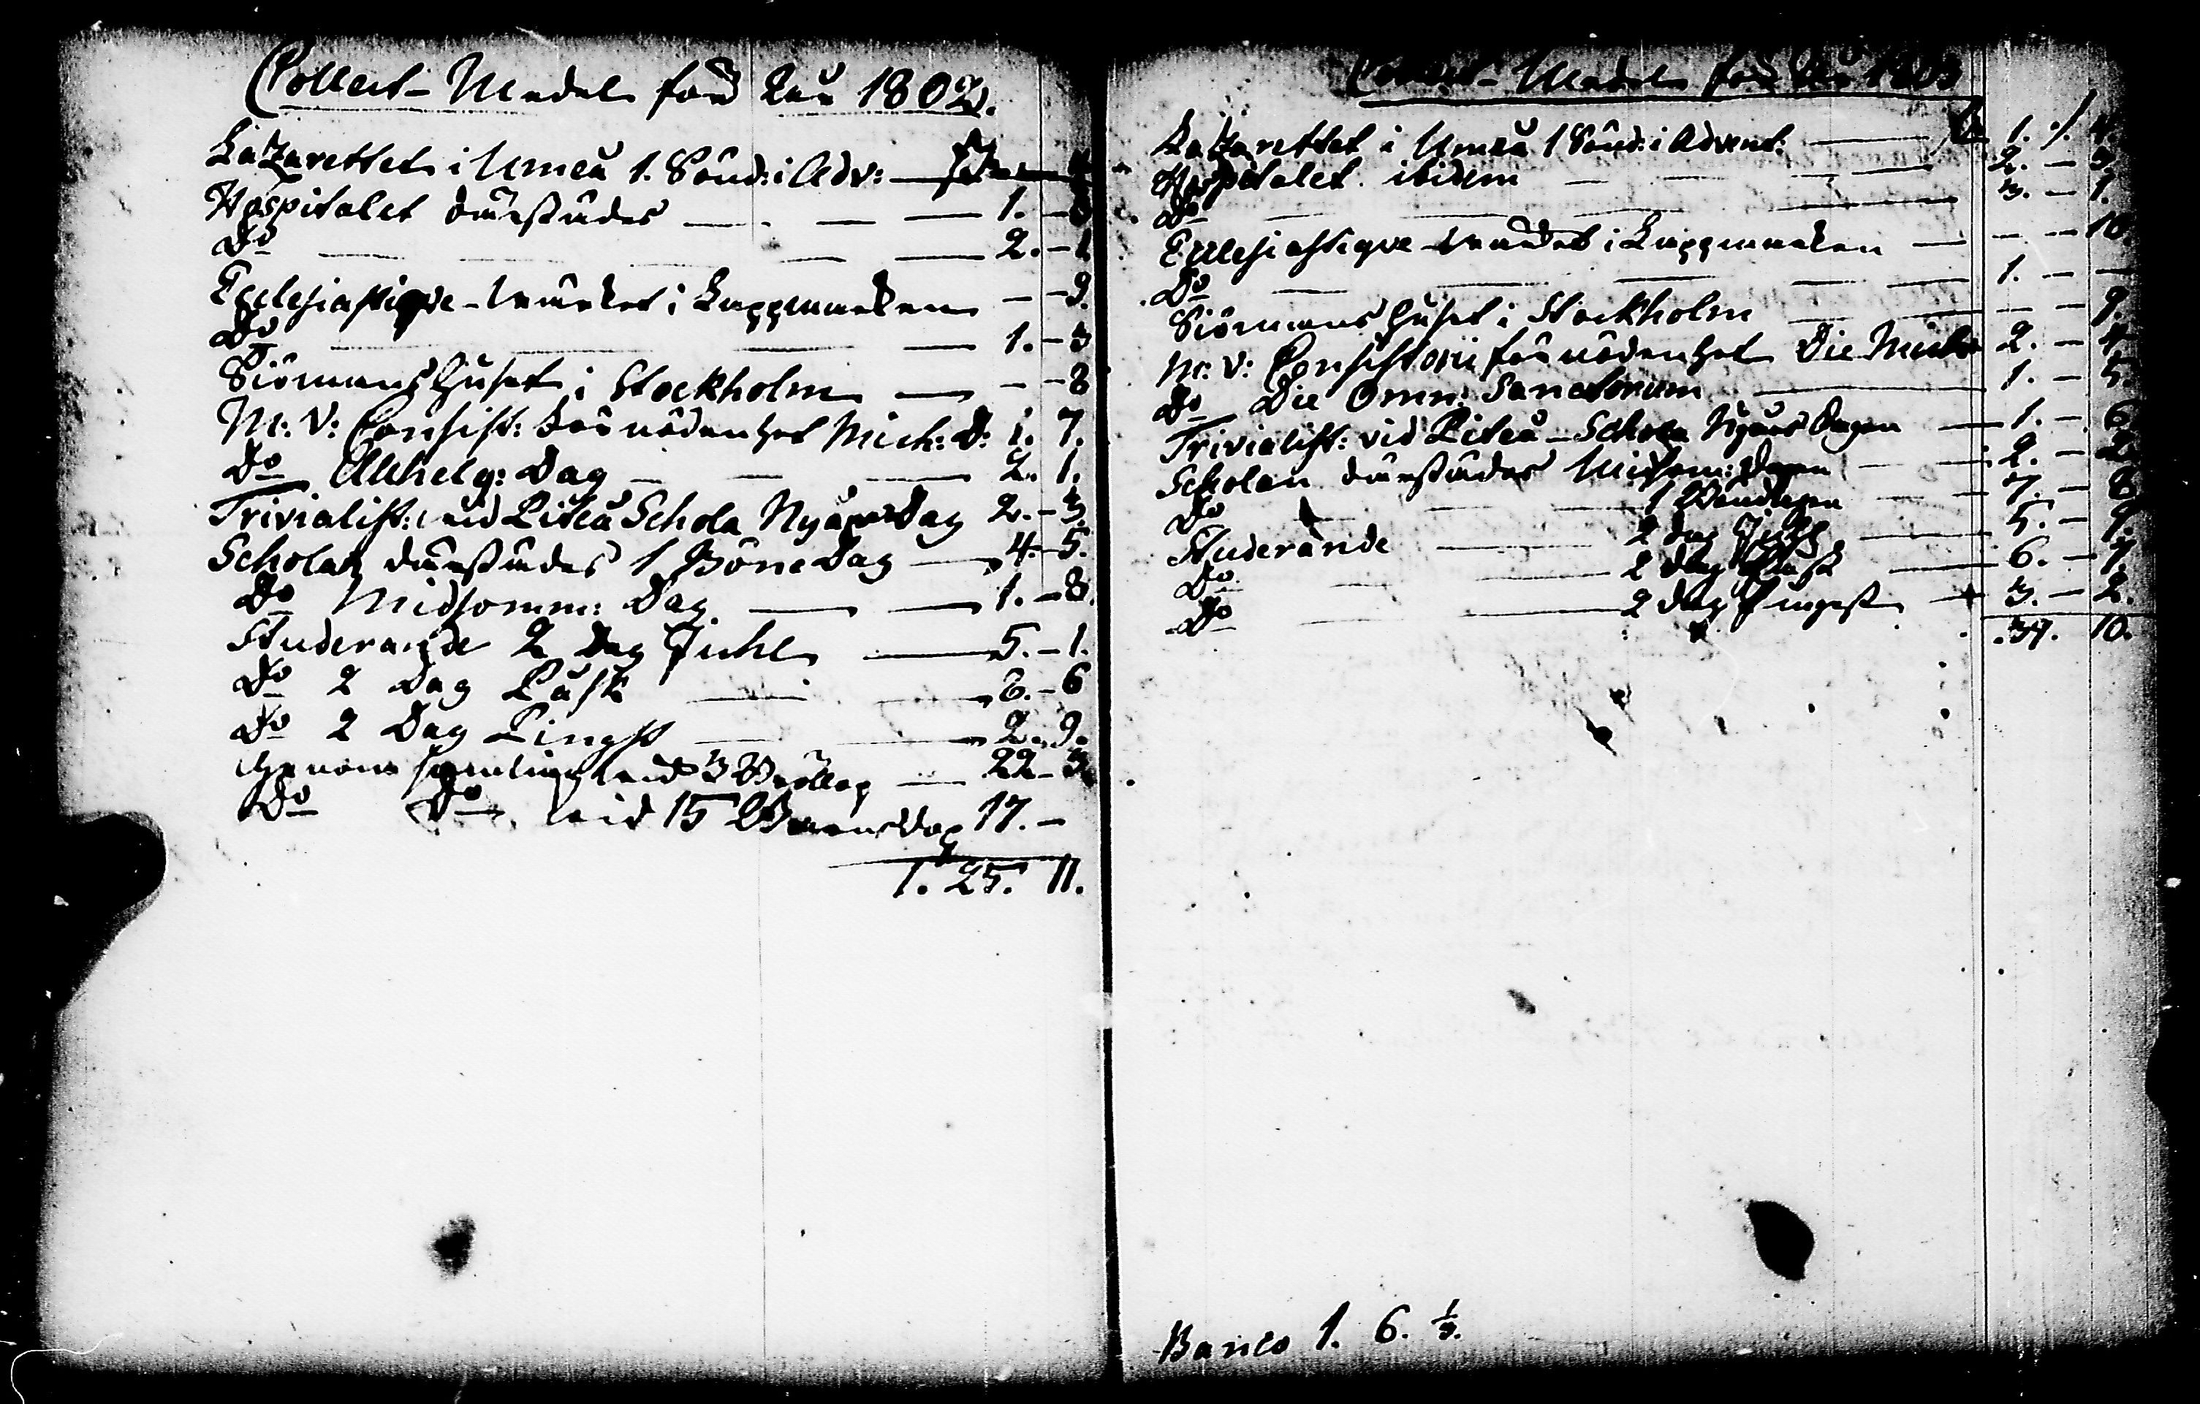 Collect-Medel för Åhr 1802.
Lazarettet i Umeå 1. Sönd: i Adv: — 4
Hospitalet därstädes — 1. — 8
Do — 2. — 1
Ecclesiastique-Wärket i Lappmarken — — 9.
Do — 1. — 3
Siömans Huset i Stockholm — — 8
M: V: Consist: Förnödenhet Mich: D: 1. 7.
Do Allhelg: Dag — 2. 1.
Trivialist: vid Piteå Schola Nyårs Dag 2. — 3.
Scholan därstädes 1 Böne Dag — 4. — 5.
Do Midsomm: Dag — 1. — 8.
Studerande 2 Dag Juhl — 5. — 1.
Do 2 Dag Påsk — 6. — 6
Do 2 Dag Pingst — 2. 9.
Genom samling vid 3 Bröllop — 22 — 3
Do Do vid 15 Barnsdop 17. —
1. 25. 11.
Collect-Medel för Åhr 1803
Lazarettet i Umeå 1 Sönd: i Advent: — 1. 4.
Hospitalet ibidem — 2. — 3.
Do — 3. — 1.
Ecclesiastique-Wärket i Lappmarken — — 10.
Do — 1. — —
Siömans Huset i Stockholm — — 9.
M: V: Consistorii förnödenhet Die Mich 2. — 4.
Do Die Omn: Sanctorum — 1. — 5.
Trivialist: vid Piteå-Schola Nyårs Dagen — 1. — 6.
Scholan därstädes Midsom: Dagen — 2. — 2.
Do — 1 Böndagen — 7. — 8.
Studerande — 2 dag Juhl — 5. — 9.
Do — 2 dag Påsk — 6. — 7.
Do — 2 dag Pingst — 3. — 2.
37. 10.
Banco 1. 6.